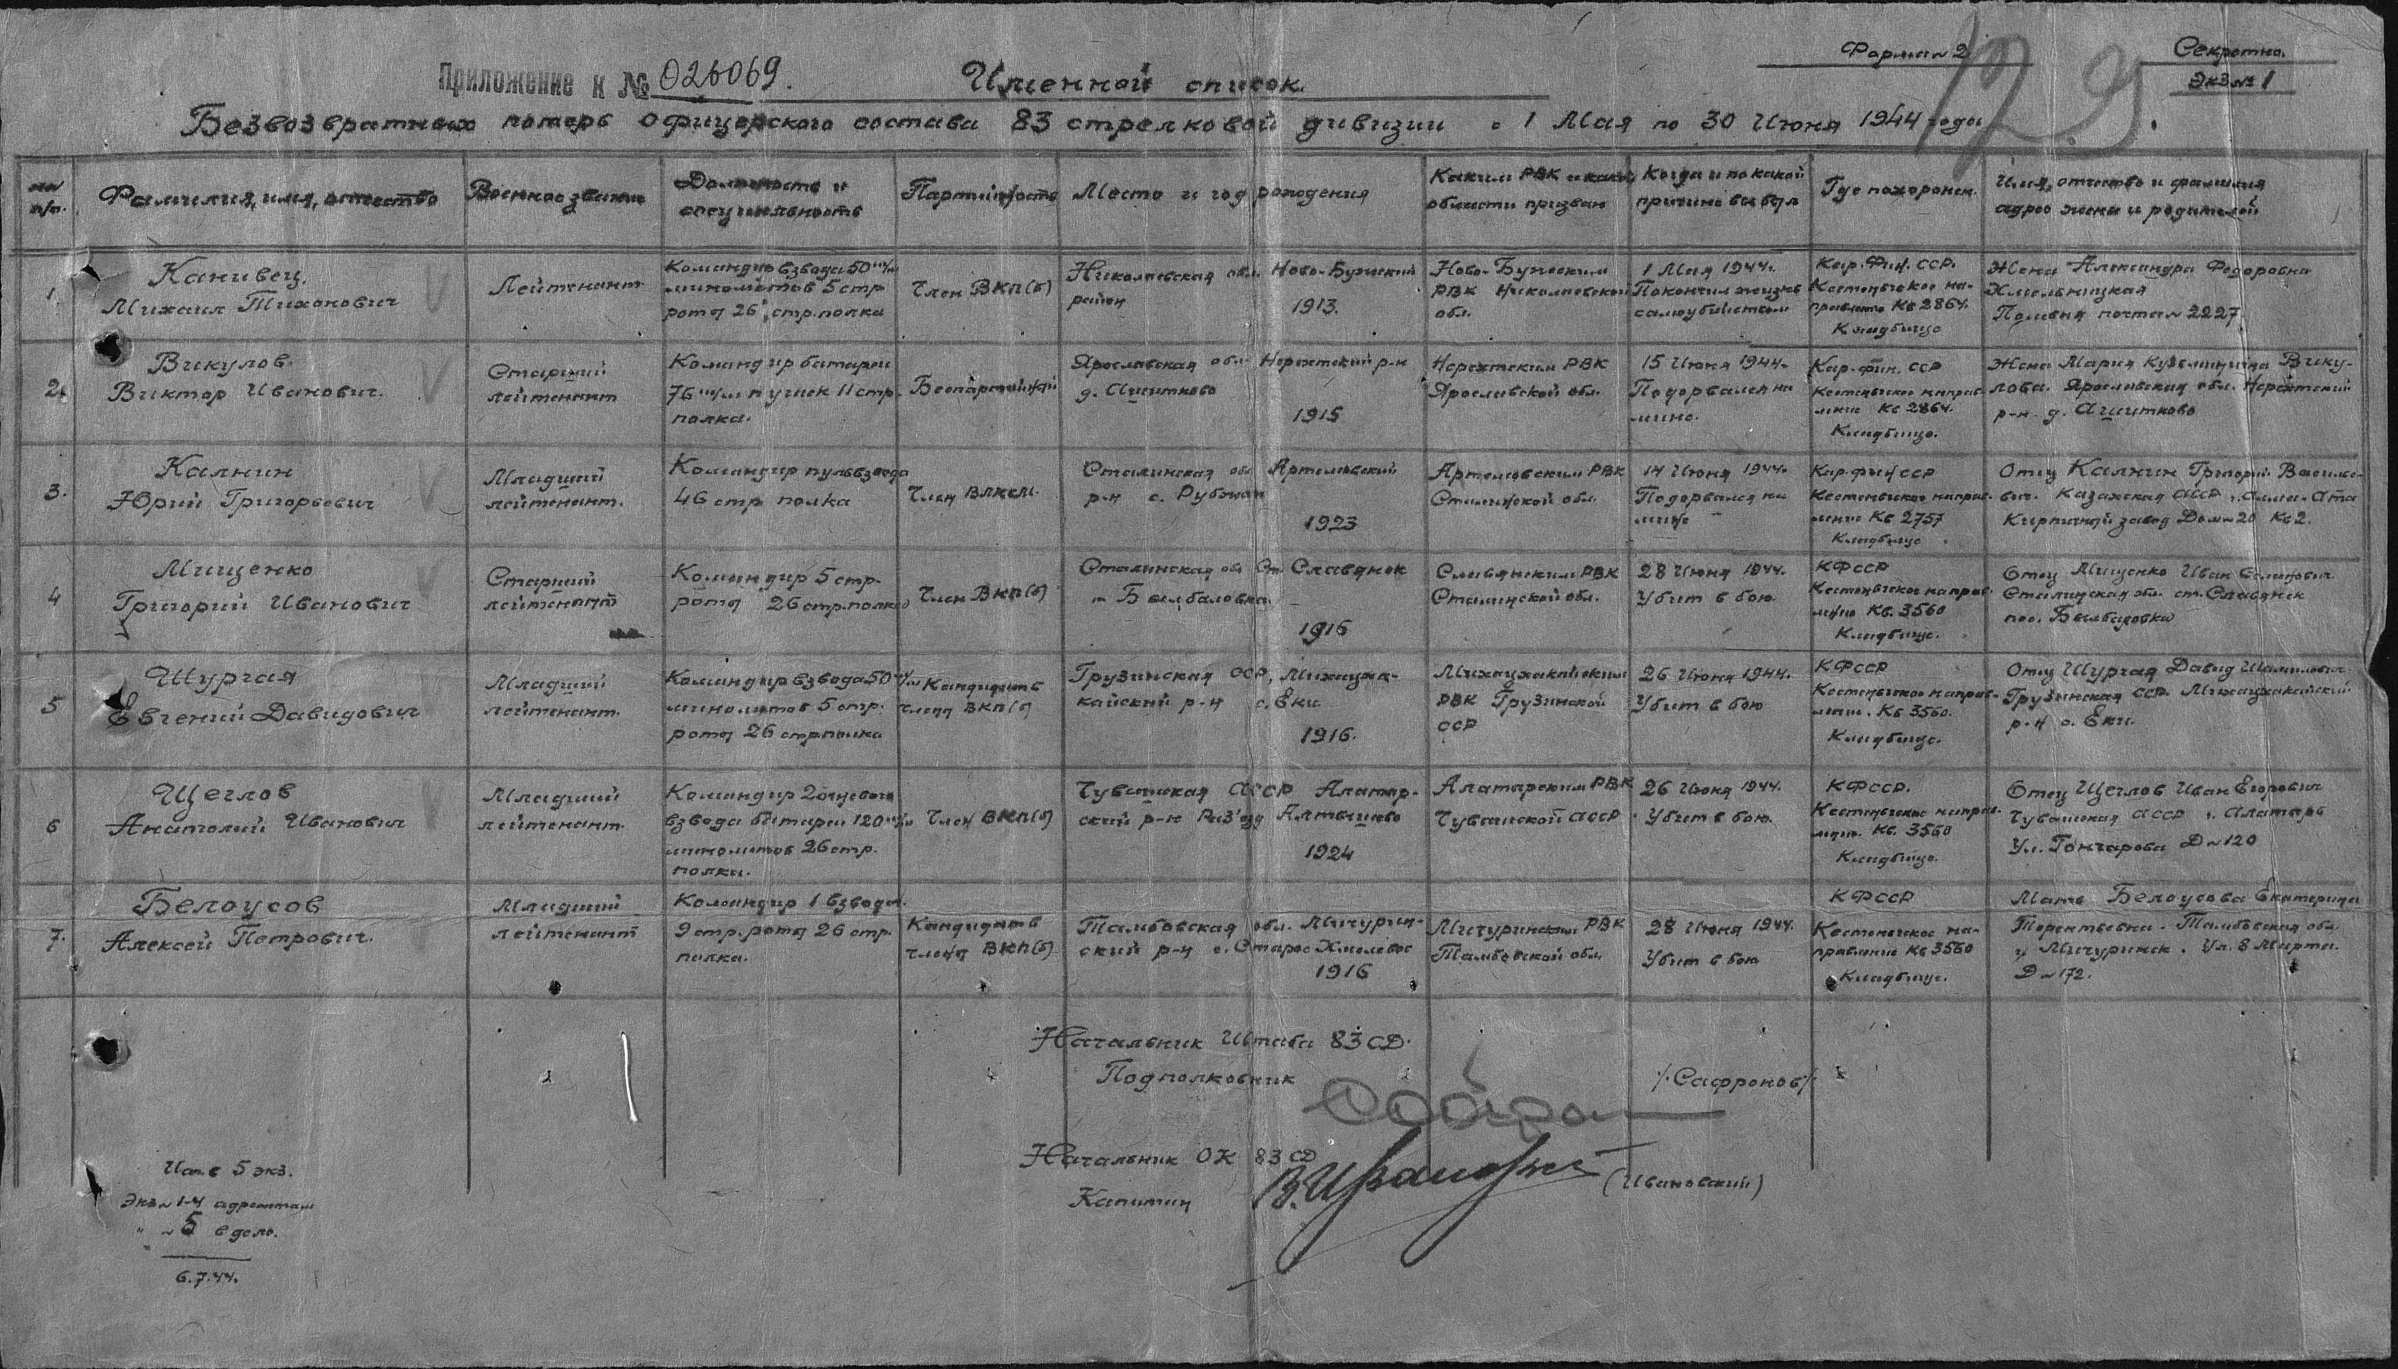 Форма № 2
Секретно.
Экз № 1
Приложение к № 026069.
Именной список.
Безвозвратных потерь офицерского состава 83 стрелковой дивизии с 1 Мая по 30 Июня 1944 года
№№ п/п.
Фамилия, имя, отчество
Военное звание
Должность и
специальность
Партийность
Место и год рождения
Каким РВК и какой
области призван
Когда и по какой
причине выбыл
Где похоронен.
Имя, отчество и фамилия
адрес жены и родителей
1.
Канивец.
Михаил Тихонович
Лейтенант
Командир взвода 50 м/м
минометов 5 стр
роты 26 стр. полка
Член ВКП(б)
Николаевская обл. Ново-Бугский
район
1913.
Ново-Бугским
РВК Николаевской
обл.
1 Мая 1944г.
Покончил жизнь
самоубийством
Кар. Фин. ССР.
Кестеньгское на-
правление Кв 2864.
Кладбище
Жена Александра Федоровна
Хмельницкая
Полевая почта № 2227
2.
Викулов.
Виктор Иванович.
Старший
лейтенант
Командир батареи
76 м/м пушек 11 стр.
полка.
Беспартийный
Ярославская обл. Нерехтский р-н
д.
1915
Нерехтским РВК
Ярославской обл.
15 Июня 1944г.
Подорвался на
мине.
Кар. фин. ССР
Кестеньгское направ-
ление Кв 2864.
Кладбище.
Жена Мария Кузьминична Вику-
лова. Ярославская обл. Нерехтский
р-н. д.
3.
Калнин
Юрий Григорьевич
Младший
лейтенант.
Командир пульвзвода
46 стр полка
Член ВЛКСМ.
Сталинская обл Артемовский
р-н с. Рубжан
1923
Артемовским РВК
Сталинской обл.
14 Июня 1944г.
Подорвался на
мине
Кар. фин ССР
Кестеньгское направ-
ление Кв 2757
Кладбище
Отец Калнин Григорий Василье-
вич. Казахская АССР г. Алма-Ата
Кирпичный завод Дом № 20 Кв 2.
4
Мищенко
Григорий Иванович
Старший
лейтенант
Командир 5 стр.
роты 26 стр. полка
Член ВКП(б)
Сталинская обл Ст. Славянск
п Былбасовка.
1916
Славянским РВК
Сталинской обл.
28 Июня 1944г.
Убит в бою
КФССР
Кестеньгское направ-
ление Кв. 3560
Кладбище.
Отец Мищенко Иван
Сталинская обл. ст. Славянск
пос. Былбасовка
5
Шургая
Евгений Давидович
Младший
лейтенант.
Командир взвода 50 м/м
минометов 5 стр.
роты 26 стр полка
Кандидат в
члены ВКП(б)
Грузинская ССР, Михацха-
кайский р-н с. Еки
1916.
Михацхакайским
РВК Грузинской
ССР
26 Июня 1944г.
Убит в бою
КФССР
Кестеньгское направ-
ление. Кв 3560.
Кладбище.
Отец Шургая Давид
Грузинская ССР. Михацхакайский
р-н с. Еки.
6
Щеглов
Анатолий Иванович
Младший
лейтенант.
Командир 2 огневого
взвода батареи 120 м/м
минометов 26 стр.
полка.
Член ВКП(б)
Чувашская АССР Алатыр-
ский р-н Раз'езд Алтышево
1924
Алатырским РВК
Чувашской АССР
26 Июня 1944г.
Убит в бою.
КФССР.
Кестеньгское направ-
ление. Кв. 3560
Кладбище.
Отец Щеглов Иван Егорович
Чувашская АССР г. Алатырь
Ул. Гончарова Д № 120
7.
Белоусов
Алексей Петрович.
Младший
лейтенант
Командир 1 взвода.
9 стр. роты 26 стр.
полка.
Кандидат в
члены ВКП(б)
Тамбовская обл. Мичурин-
ский р-н с. Старое Хмелевое
1916
Мичуринским РВК
Тамбовской обл.
28 Июня 1944г.
Убит в бою
КФССР
Кестеньгское на-
правление Кв 3560
Кладбище.
Мать Белоусова Екатерина
Терентьевна. Тамбовская обл.
г Мичуринск. Ул. 8 Марта.
Д № 172.
Начальник Штаба 83 СД.
Подполковник
/.Сафронов/.
Начальник ОК 83 СД
Капитан
В. Ивановский
(Ивановский)
Исп. в 5 экз.
Экз № 1-4 адресатам
" № 5 в дело.
6.7.44.